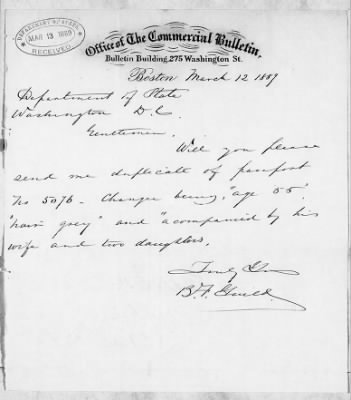 DEPARTMENT OF STATE,
MAR 13 1889
RECEIVED.
Office of The Commercial Bulletin,
Bulletin Building, 275 Washington St.
Boston March 12 1889
Department of State
Washington D.C.
Gentlemen.
Will you please
send me duplicate of passport
No 5076 - Changes being, "age 55",
"hair grey" and "acompanied by his
wife and two daughters.
Truly Yrs
B. F.